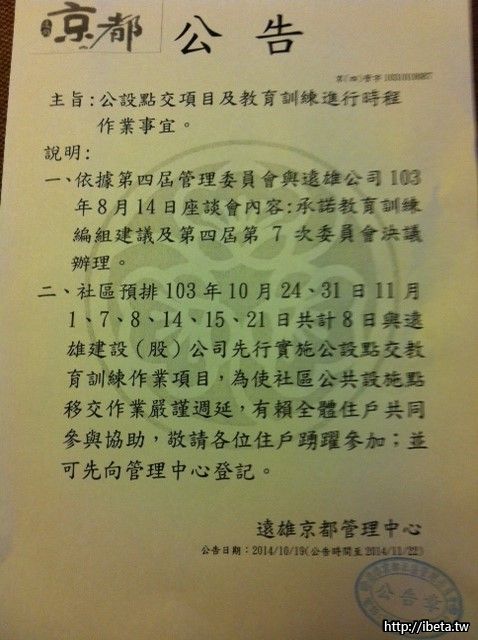 京都
公告
主旨:公設點交項目及教育訓練進行時程
作業事宜。
說明:
一、依據第四屆管理委員會與遠雄公司103
年8月14日座談會內容:承諾教育訓練
編組建議及第四屆第7次委員會決議
辦理。
二、社區預排103年10月24、31日11月
1、7、8、14、15、21日共計8日與遠
雄建設(股)公司先行實施公設點交教
育訓練作業項目,為使社區公共設施點
移交作業嚴謹週延,有賴全體住戶共同
參與協助,敬請各位住戶踴躍參加;並
可先向管理中心登記。
遠雄京都管理中心
公告日期:2014/10/19(公告時間至2014/11/22)
公告章
http://ibeta.tw